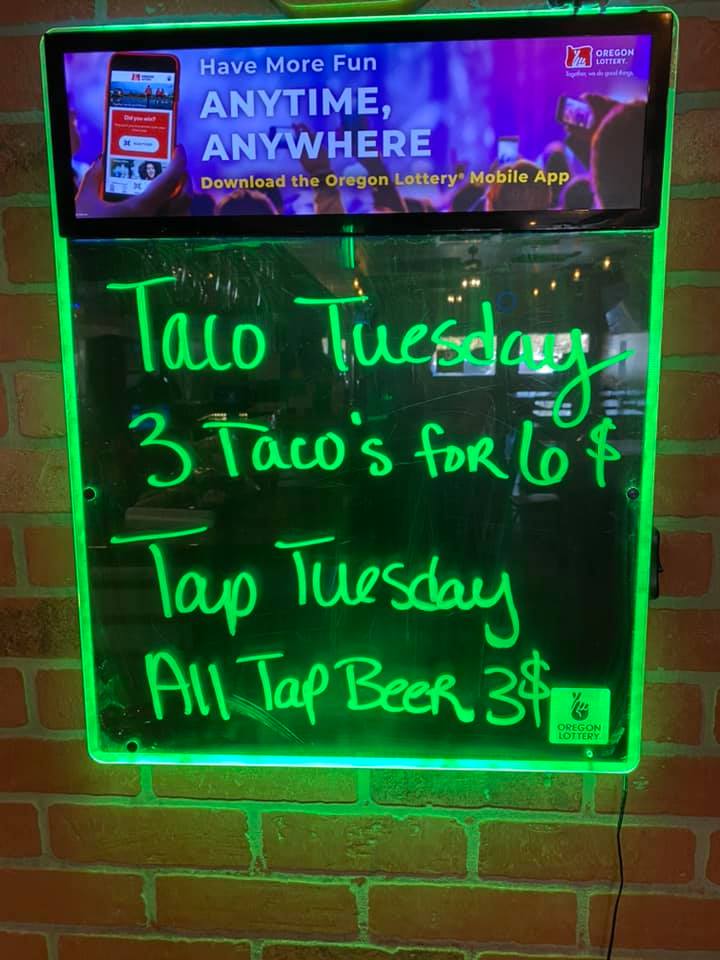 Have More Fun
ANYTIME,
ANYWHERE
Download the Oregon Lottery® Mobile App
OREGON
LOTTERY.
Together, we do good things.
Did you win?
Taco Tuesday
3 Taco's for 6$
Tap Tuesday
All Tap Beer 3$
OREGON
LOTTERY